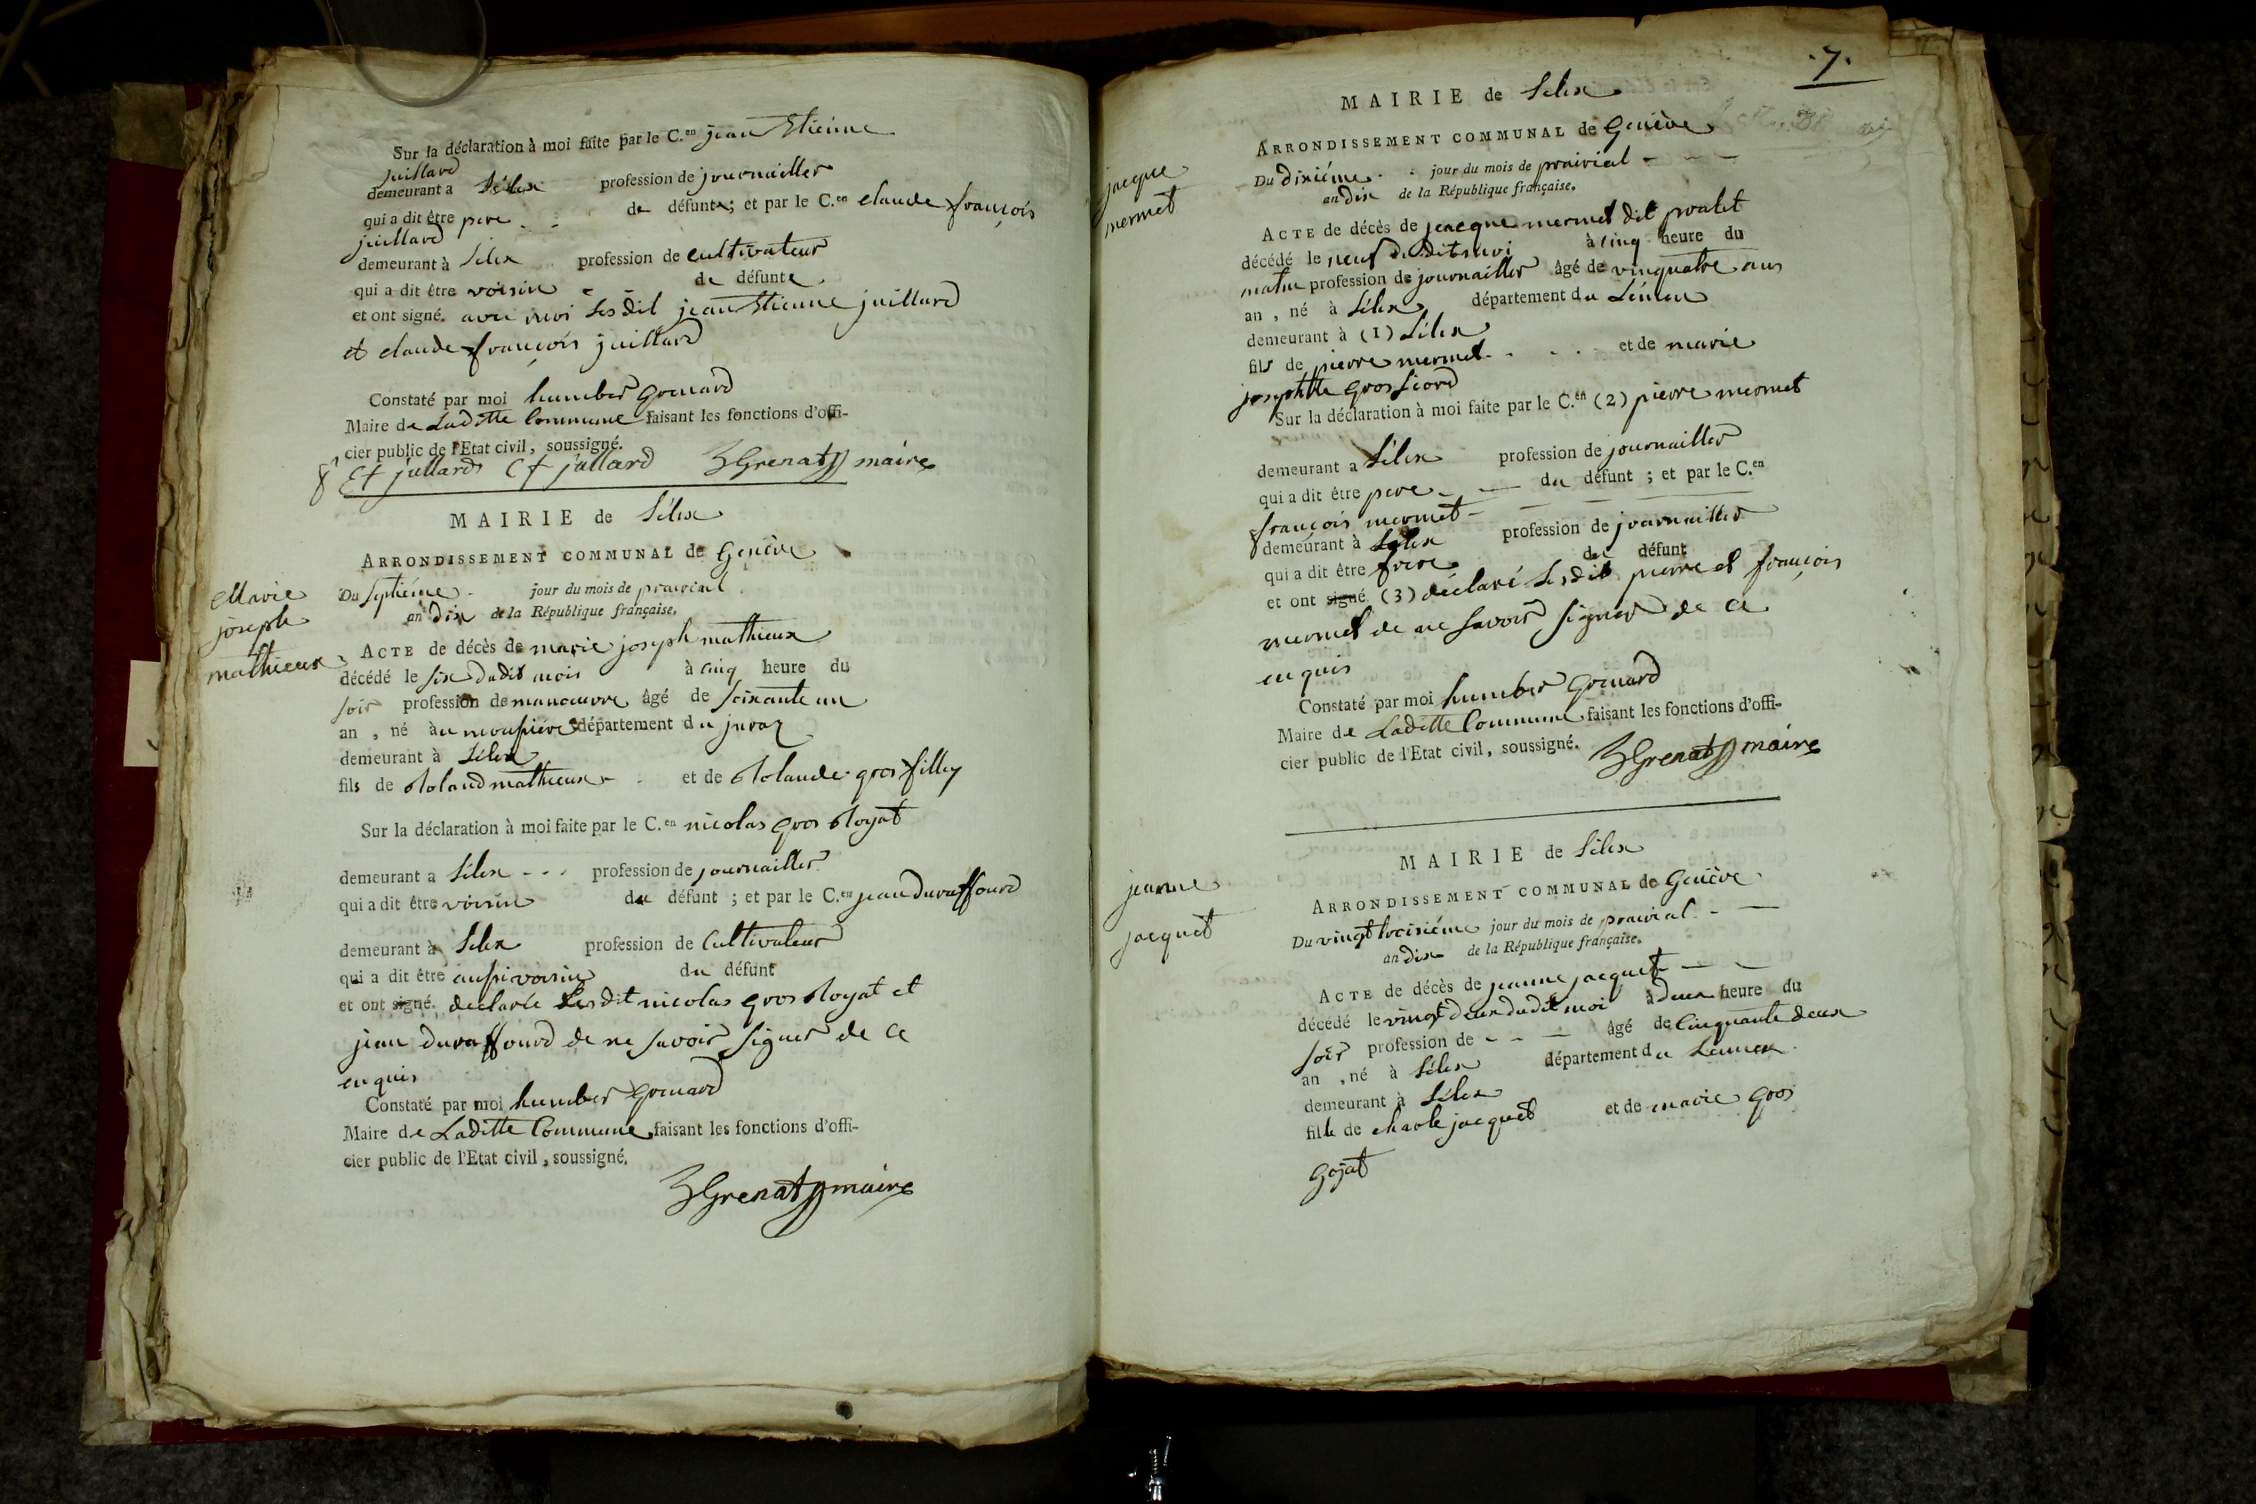 Sur la déclaration à moi faite par le C.en jean Etienne
juillard
demeurant a Lélex profession de journailler
qui a dit être pere de défunte; et par le C.en claude françois
juillard
demeurant à Lélex profession de cultivateur
qui a dit être voisin de défunte
et ont signé. avec moi lesdit jean Etienne juillard
et claude françois juillard
Constaté par moi humber grenard
Maire de Laditte Commune faisant les fonctions d'offi-
cier public de l'Etat civil, soussigné.
Et jullard Cf jullard hGrenat maire
MAIRIE de Lélex
ARRONDISSEMENT COMMUNAL de Genève
Marie
joseph
mathieux
Du septiéme jour du mois de prairial
an dix de la République française.
ACTE de décès de marie joseph mathieux
décédé le six dudit mois à cinq heure du
soir profession de manœuvre âgé de soixante un
an, né à au moussiere département du juraz
demeurant à Lélex
fils de Roland mathieux et de Rolande gros filley
Sur la déclaration à moi faite par le C.en nicolas gros Royat
demeurant a Lélex profession de journailler
qui a dit être voisin du défunt; et par le C.en jean duraffourd
demeurant à Lélex profession de Cultivateur
qui a dit être aussi voisin du défunt
et ont signé. declarée lesdit nicolas gros Royat et
jean duraffourd de ne savoir signer de ce
enquis
Constaté par moi humber grenard
Maire de Laditte Commune faisant les fonctions d'offi-
cier public de l'Etat civil, soussigné.
hGrenat maire
.7.
MAIRIE de Lélex
ARRONDISSEMENT COMMUNAL de Genève
jacque
mermet
Du dixiéme jour du mois de prairial
an dix de la République française.
ACTE de décès de jacque mermet dit proalet
décédé le neuf dudit moi à cinq heure du
matin profession de journailler âgé de vinquatre ans
an, né à Lélex département du Léman
demeurant à (1) Lélex
fils de pierre mermet et de marie
josephtte grosfiord
Sur la déclaration à moi faite par le C.en (2) pierre mermet
demeurant a Lélex profession de journailler
qui a dit être pere du défunt; et par le C.en
françois mermet
demeurant à Lélex profession de journailler
qui a dit être frere du défunt
et ont signé. (3) déclaré lesdit pierre et françois
mermet de ne savoir signer de ce
enquis
Constaté par moi humber grenard
Maire de Laditte Commune faisant les fonctions d'offi-
cier public de l'Etat civil, soussigné.
hGrenat maire
MAIRIE de Lélex
ARRONDISSEMENT COMMUNAL de Genève
jeanne
jacquet
Du vingt troisiéme jour du mois de prairial
an dix de la République française.
ACTE de décès de jeanne jacquet
décédé le vingt deux dudit moi à deux heure du
soir profession de âgé de Cinquante deux
an, né à Lélex département du Leman
demeurant à Lélex
fille de charle jacquet et de marie gros
gojat